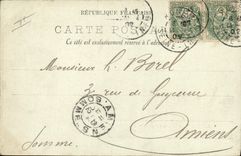 RÉPUBLIQUE FRANÇAISE
CARTE POSTALE
Ce côté est exclusivement réservé à l'adresse
Monsieur L. Borel
3, rue de Guyenne
Amiens
Somme.
AMIENS SOMME